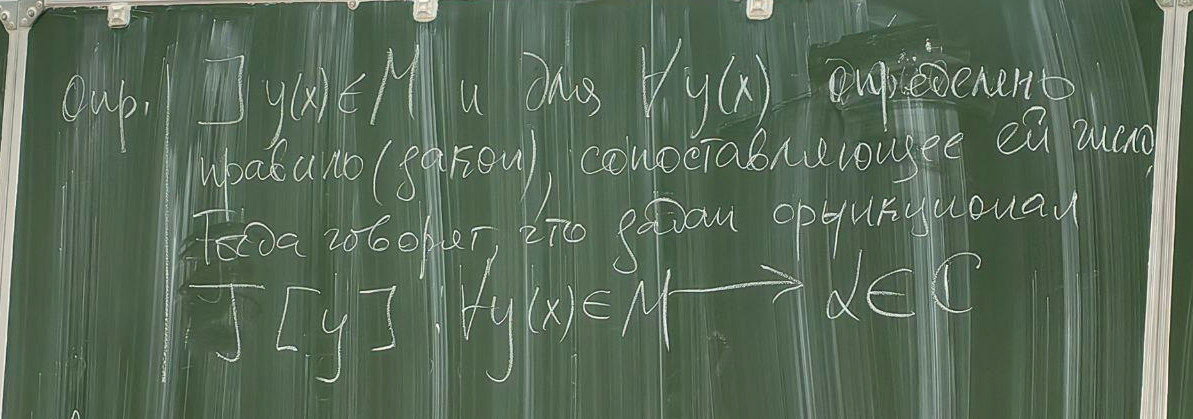 Опр. ] y(x) ∈ M и для ∀ y(x) определено
правило (закон), сопоставляющее ей число,
Тогда говорят, что задан функционал
J [y] . ∀y(x) ∈ M → α ∈ C